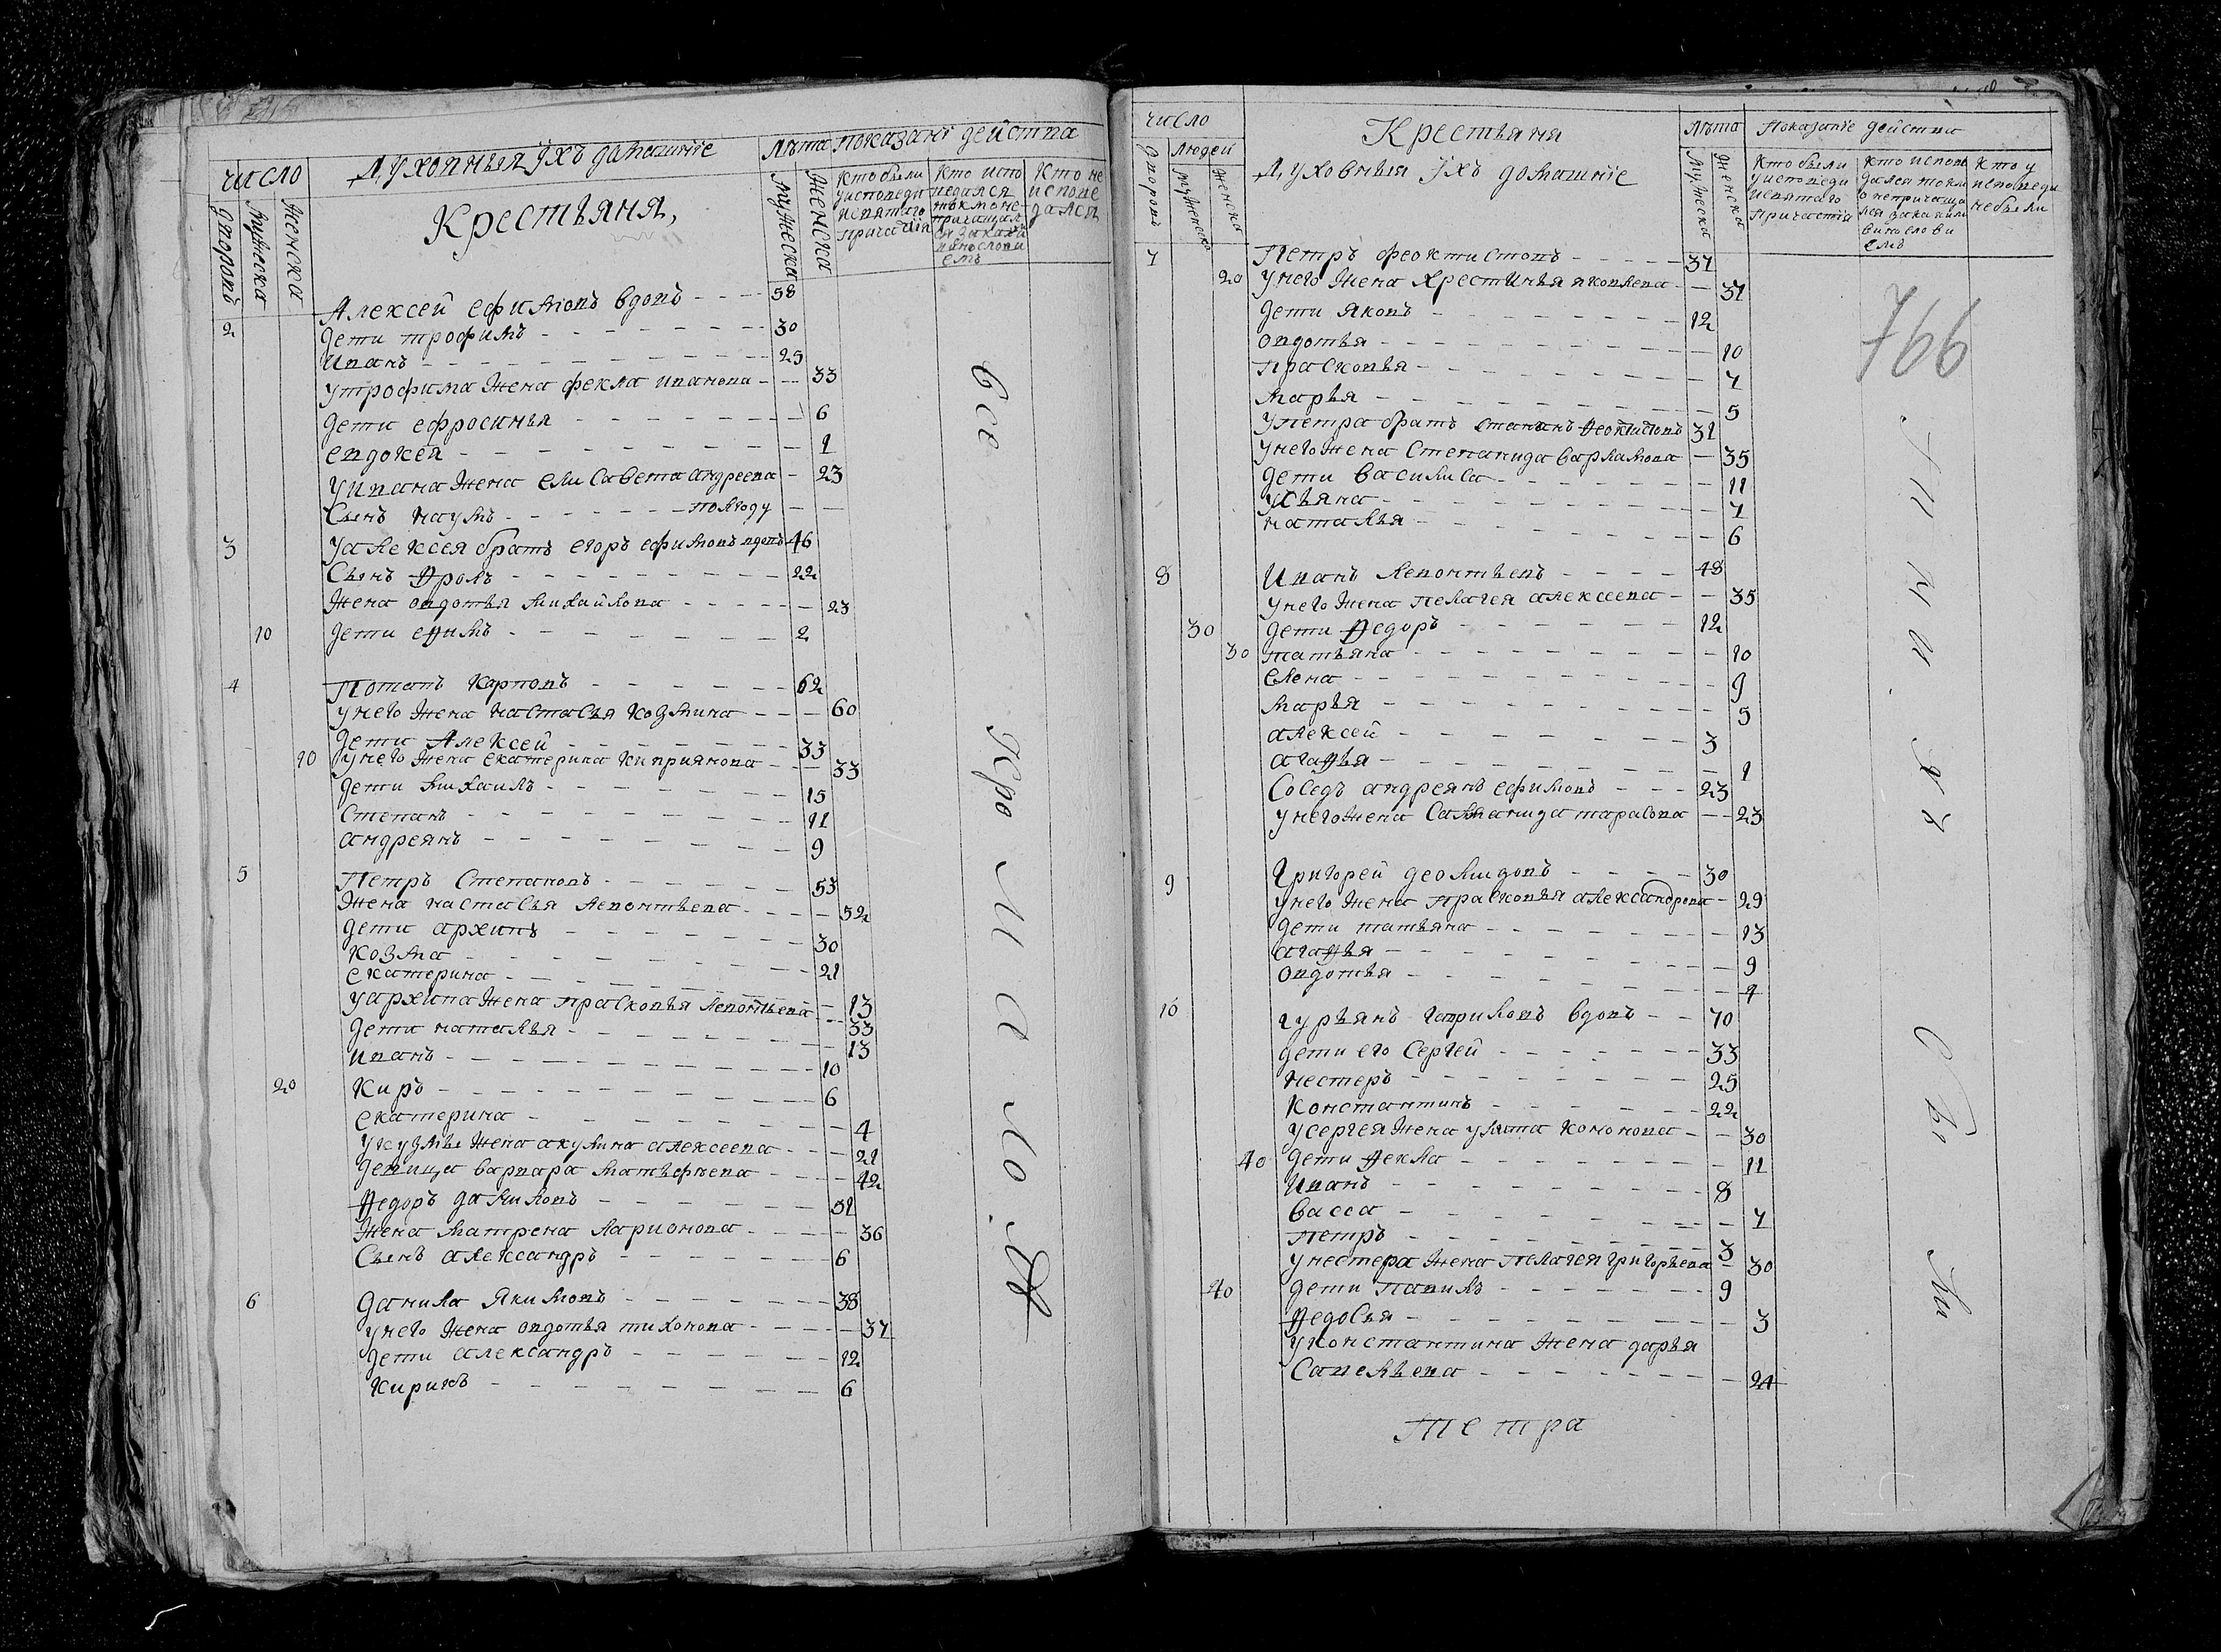 число
Духовныя Ихъ домашнїе
Лѣта
показанї действа
дворовъ
Мужеска
Женска
Крестьяня,
мужеска
женска
Кто были
у исповеди
и святаго
причастїя
Кто испо
ведался
Кто не
исповедался
Алексей ефимовъ вдовъ - - - 58
2 дети трофимъ - - - 30
Иванъ - - - 25
у трофима жена фекла иванова - - 33
дети ефросинья - - - 6
евдокея - - - 1
у Ивана жена елисавета андреева - 23
Сынъ наумъ - - - полгоду - -
3 у алексея братъ егоръ ефимовъ вдовъ 46
Сынъ Фролъ - - - 22
жена овдотья михайлова - - - 23
10 дети ефимъ - - - 2
4 Потапъ карповъ - - - 62
у него жена настасья козмина - - - 60
дети Алексей - - - 33
10 у него жена екатерина киприянова - - - 33
дети михаилъ - - - 15
Степанъ - - - 11
андреянъ - - - 9
5 Петръ Степановъ - - - 53
жена настасья леонтьева - - - 52
дети архипъ - - - 30
козма - - - 21
екатерина - - - 13
у архипа жена прасковья леонтьева - - 33
дети наталья - - - 13
иванъ - - - 10
20 Киръ - - - 6
екатерина - - - 4
у кузмы жена акулина алексеева - - - 21
девица варвара матвеева - - - 42
Федоръ даниловъ - - - 31
жена матрена ларионова - - - 36
Сынъ александръ - - - 6
6 данила Якимовъ - - - 38
у него жена овдотья тихонова - - - 37
дети александръ - - - 12
кирикъ - - - 6
все
кро
ма
ло
число
Крестьяня
Лѣта
Показанїе действа
дворовъ
людей
мужеска
женска
Духовныя Ихъ домашнїе
мужеска
женска
Кто были
у исповеди
и святаго
причастїя
Кто испов
дался токм
о непричаща
лся за каким
винословї
емъ
Кто у
исповеди
небыли
7 Петръ феоктистовъ - - - 37
20 у него жена Хрестинья яковлева - - 37
дети яковъ - - - 12
овдотья - - - 10
прасковья - - - 7
марья - - - 5
у петра братъ Феоктистовъ 31
у него жена Степанида варламова - 35
дети василиса - - - 11
ульяна - - - 7
наталья - - - 6
8 Иванъ леонтьевъ - - - 48
у него жена пелагея алексеева - - 35
30 дети Федоръ - - - 12
30 татьяна - - - 10
елена - - - 9
марья - - - 5
алексей - - - 3
агафья - - - 1
Соседъ андреянъ ефимовъ - - - 23
у него жена тарасова - - 23
9 Григорей деомидовъ - - - 30
у него жена прасковья александрова - 29
дети татьяна - - - 13
агафья - - - 9
овдотья - - - 4
10 гурьянъ гавриловъ вдовъ - - 70
дети его Сергей - - - 33
нестеръ - - - 25
константинъ - - - 22
у сергея жена улита кононова - - 30
40 дети Фекла - - - 11
Иванъ - - - 8
васса - - - 7
петръ - - - 3
у нестера жена пелагея григорьева - 30
40 дети павилъ - - - 9
Федосья - - - 3
у константина жена дарья
Савельева - - - 24
766